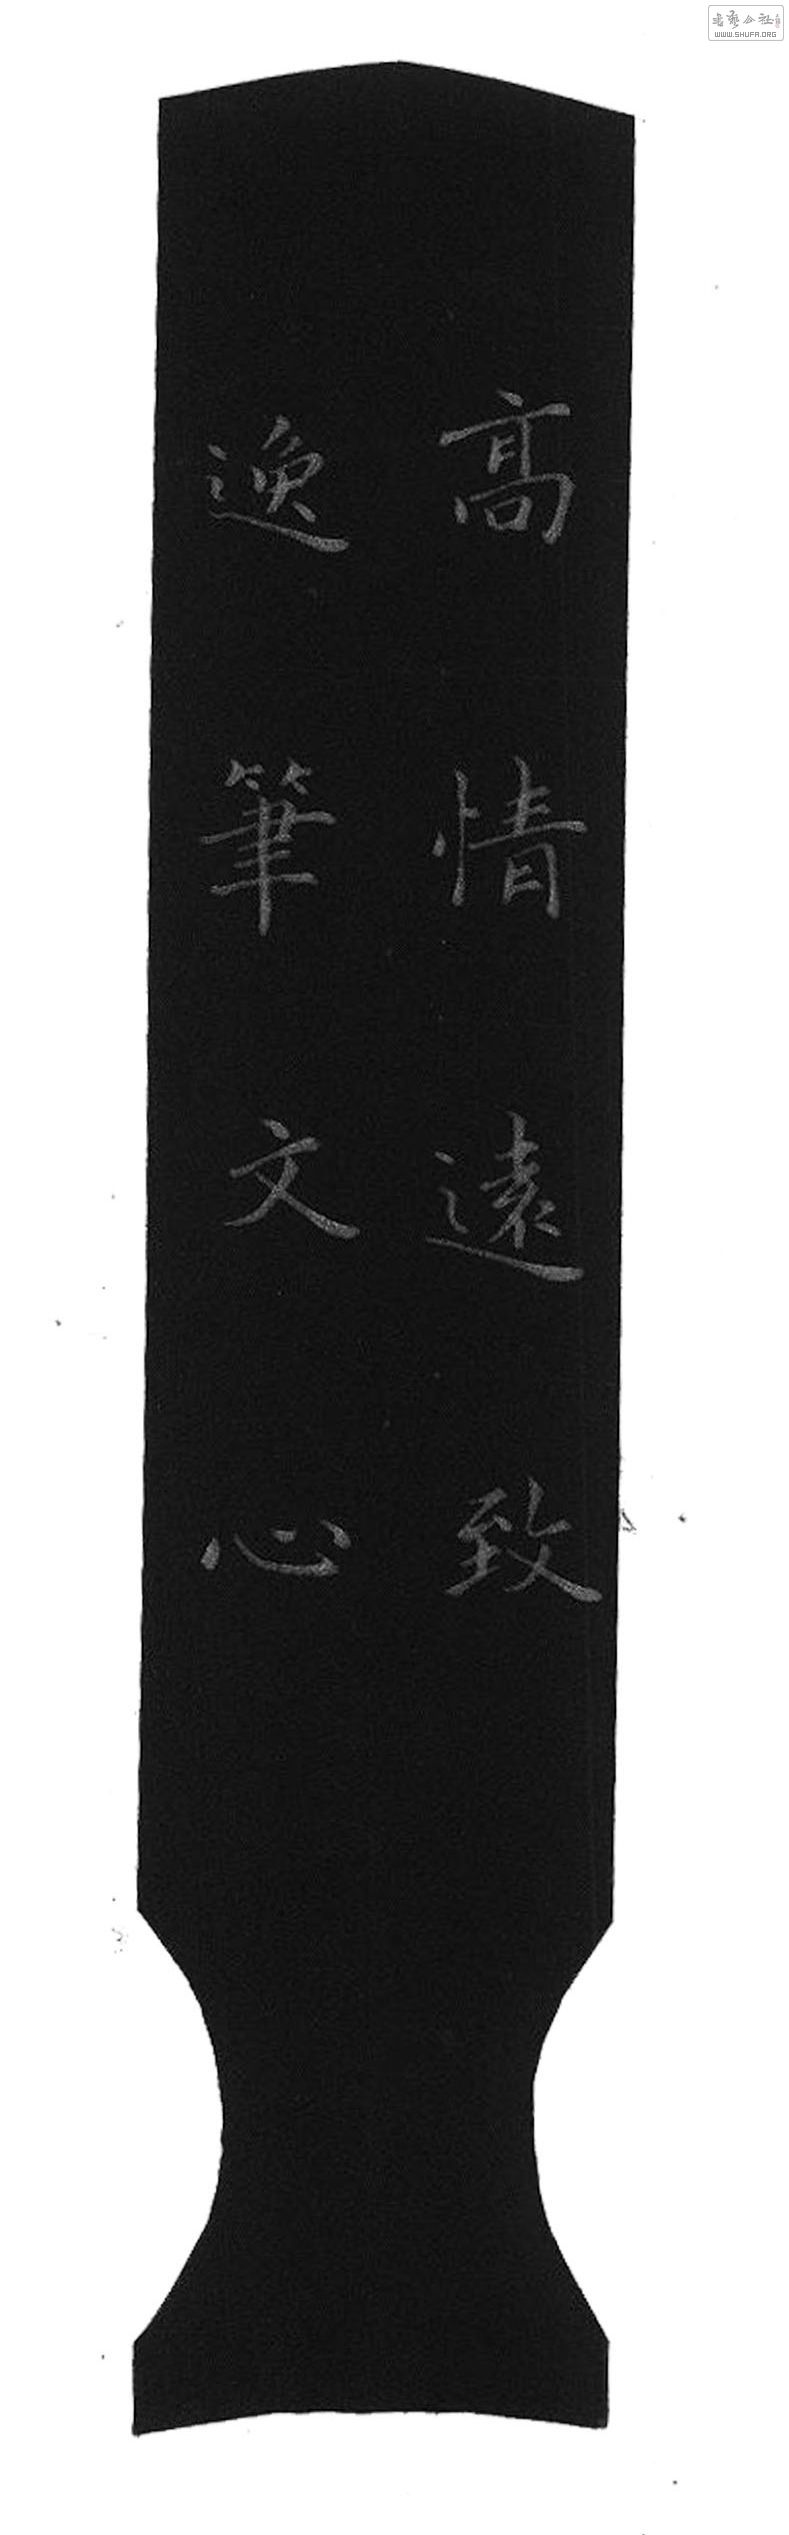 高情遠致
逸筆文心
書藝公社
WWW.SHUFA.ORG